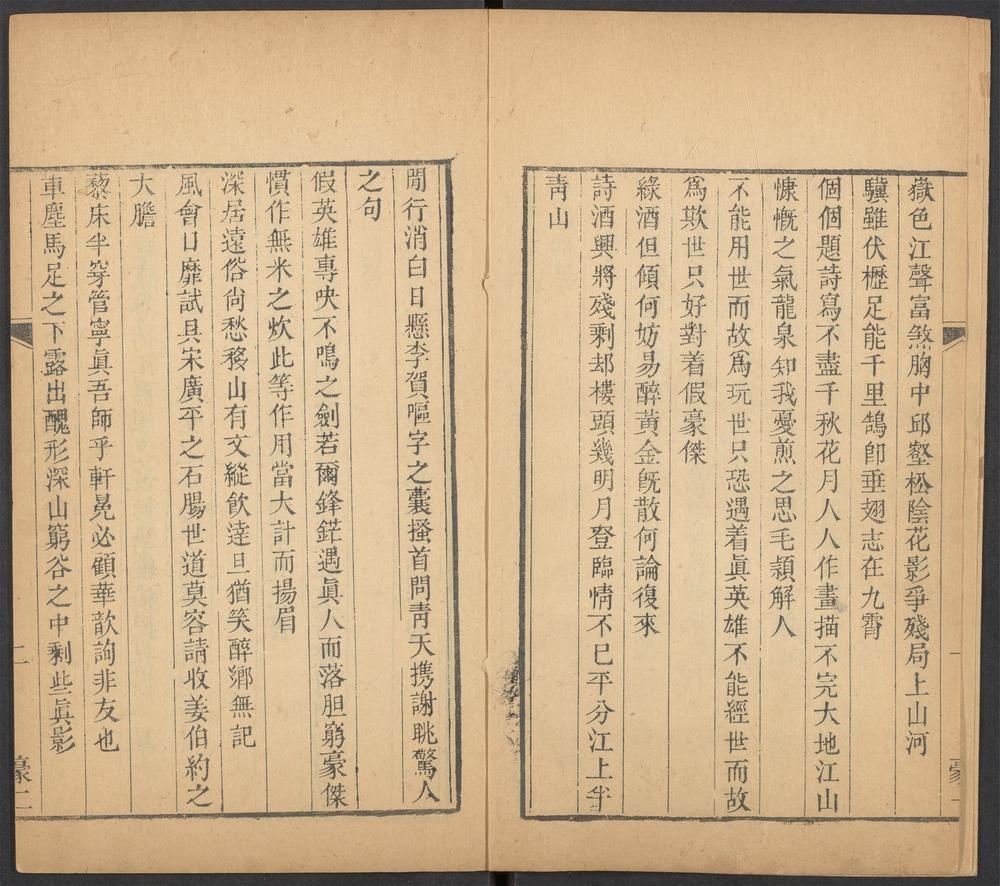 嶽色江聲富煞胸中邱壑松陰花影爭殘局上山河
驥雖伏櫪足能千里鵠卽垂翅志在九霄
個個題詩寫不盡千秋花月人人作畫描不完大地江山
慷慨之氣龍泉知我憂煎之思毛穎解人
不能用世而故爲玩世只恐遇着眞英雄不能經世而故
爲欺世只好對着假豪傑
綠酒但傾何妨易醉黃金旣散何論復來
詩酒興將殘剩却樓頭幾明月登臨情不已平分江上半
靑山
一
豪一
閒行消白日懸李賀嘔字之囊搔首問靑天携謝朓驚人
之句
假英雄專吷不鳴之劍若爾鋒鋩遇眞人而落胆窮豪傑
慣作無米之炊此等作用當大計而揚眉
深居遠俗尙愁移山有文縱飮達旦猶笑醉鄉無記
風會日靡試具宋廣平之石腸世道莫容請收姜伯約之
大膽
藜床半穿管寧眞吾師乎軒冕必顧華歆詢非友也
車塵馬足之下露出醜形深山窮谷之中剩些眞影
二
豪二